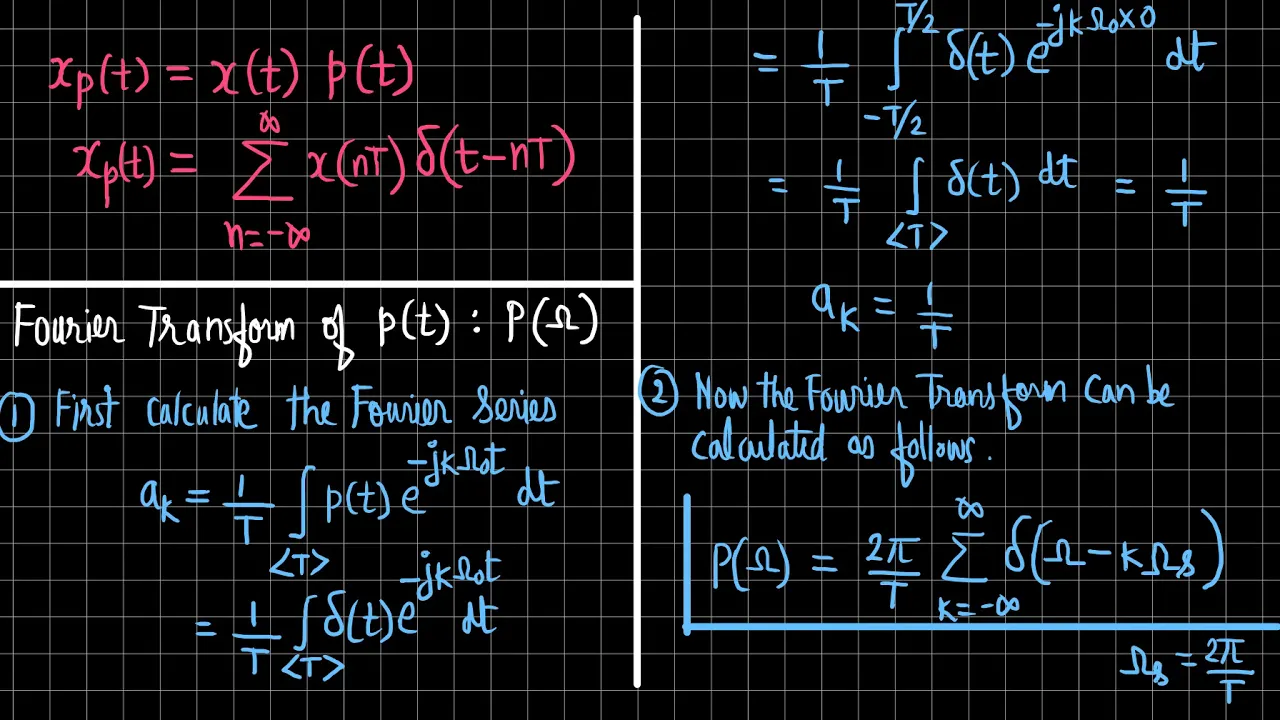 x_p(t) = x(t) p(t)
x_p(t) = ∑_{n=-∞}^{∞} x(nT) δ(t-nT)
Fourier Transform of p(t) : P(Ω)
① First calculate the Fourier Series
a_k = 1/T ∫_{<T>} p(t) e^{-jkΩ₀t} dt
= 1/T ∫_{<T>} δ(t) e^{-jkΩ₀t} dt
= 1/T ∫_{-T/2}^{T/2} δ(t) e^{-jkΩ₀×0} dt
= 1/T ∫_{<T>} δ(t) dt = 1/T
a_k = 1/T
② Now the Fourier Transform Can be
Calculated as follows.
P(Ω) = 2π/T ∑_{k=-∞}^{∞} δ(Ω-kΩ_s)
Ω_s = 2π/T